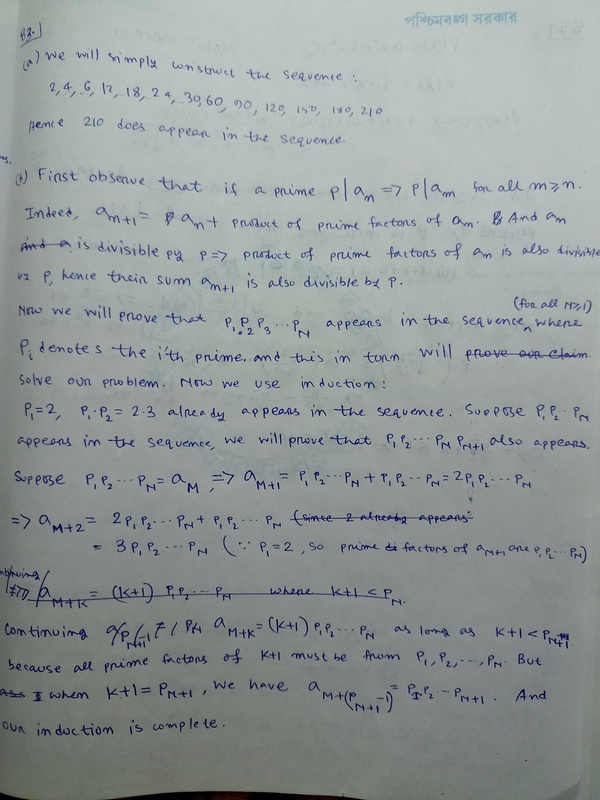 পশ্চিমবঙ্গ সরকার
B3.]
(a) We will simply construct the sequence :
2, 4, 6, 12, 18, 24, 30, 60, 90, 120, 150, 180, 210
Hence 210 does appear in the sequence.
(b) First observe that if a prime p | aₙ => p | aₘ for all m ≥ n.
Indeed, aₙ₊₁ = aₙ + product of prime factors of aₙ. And aₙ
is divisible by p => product of prime factors of aₙ is also divisible
by p, hence their sum aₙ₊₁ is also divisible by p.
(for all N≥1)
Now we will prove that P₁P₂P₃...P_N appears in the sequence, where
Pᵢ denotes the i'th prime. and this in turn will prove our claim
solve our problem. Now we use induction :
P₁=2, P₁·P₂ = 2·3 already appears in the sequence. Suppose P₁P₂...P_N
appears in the sequence, we will prove that P₁P₂...P_N P_{N+1} also appears.
Suppose P₁P₂...P_N = a_M, => a_{M+1} = P₁P₂...P_N + P₁P₂...P_N = 2P₁P₂...P_N
=> a_{M+2} = 2P₁P₂...P_N + P₁P₂...P_N (since 2 already appears
= 3P₁P₂...P_N (∵ P₁=2, so prime factors of a_{M+1} are P₁P₂...P_N)
a_{M+K} = (K+1) P₁P₂...P_N where K+1 < P_N.
Continuing a_{M+K} = (K+1) P₁P₂...P_N as long as K+1 < P_{N+1}
because all prime factors of K+1 must be from P₁, P₂, ..., P_N. But
when K+1 = P_{N+1}, we have a_{M+(P_{N+1}-1)} = P₁P₂...P_{N+1}. And
our induction is complete.